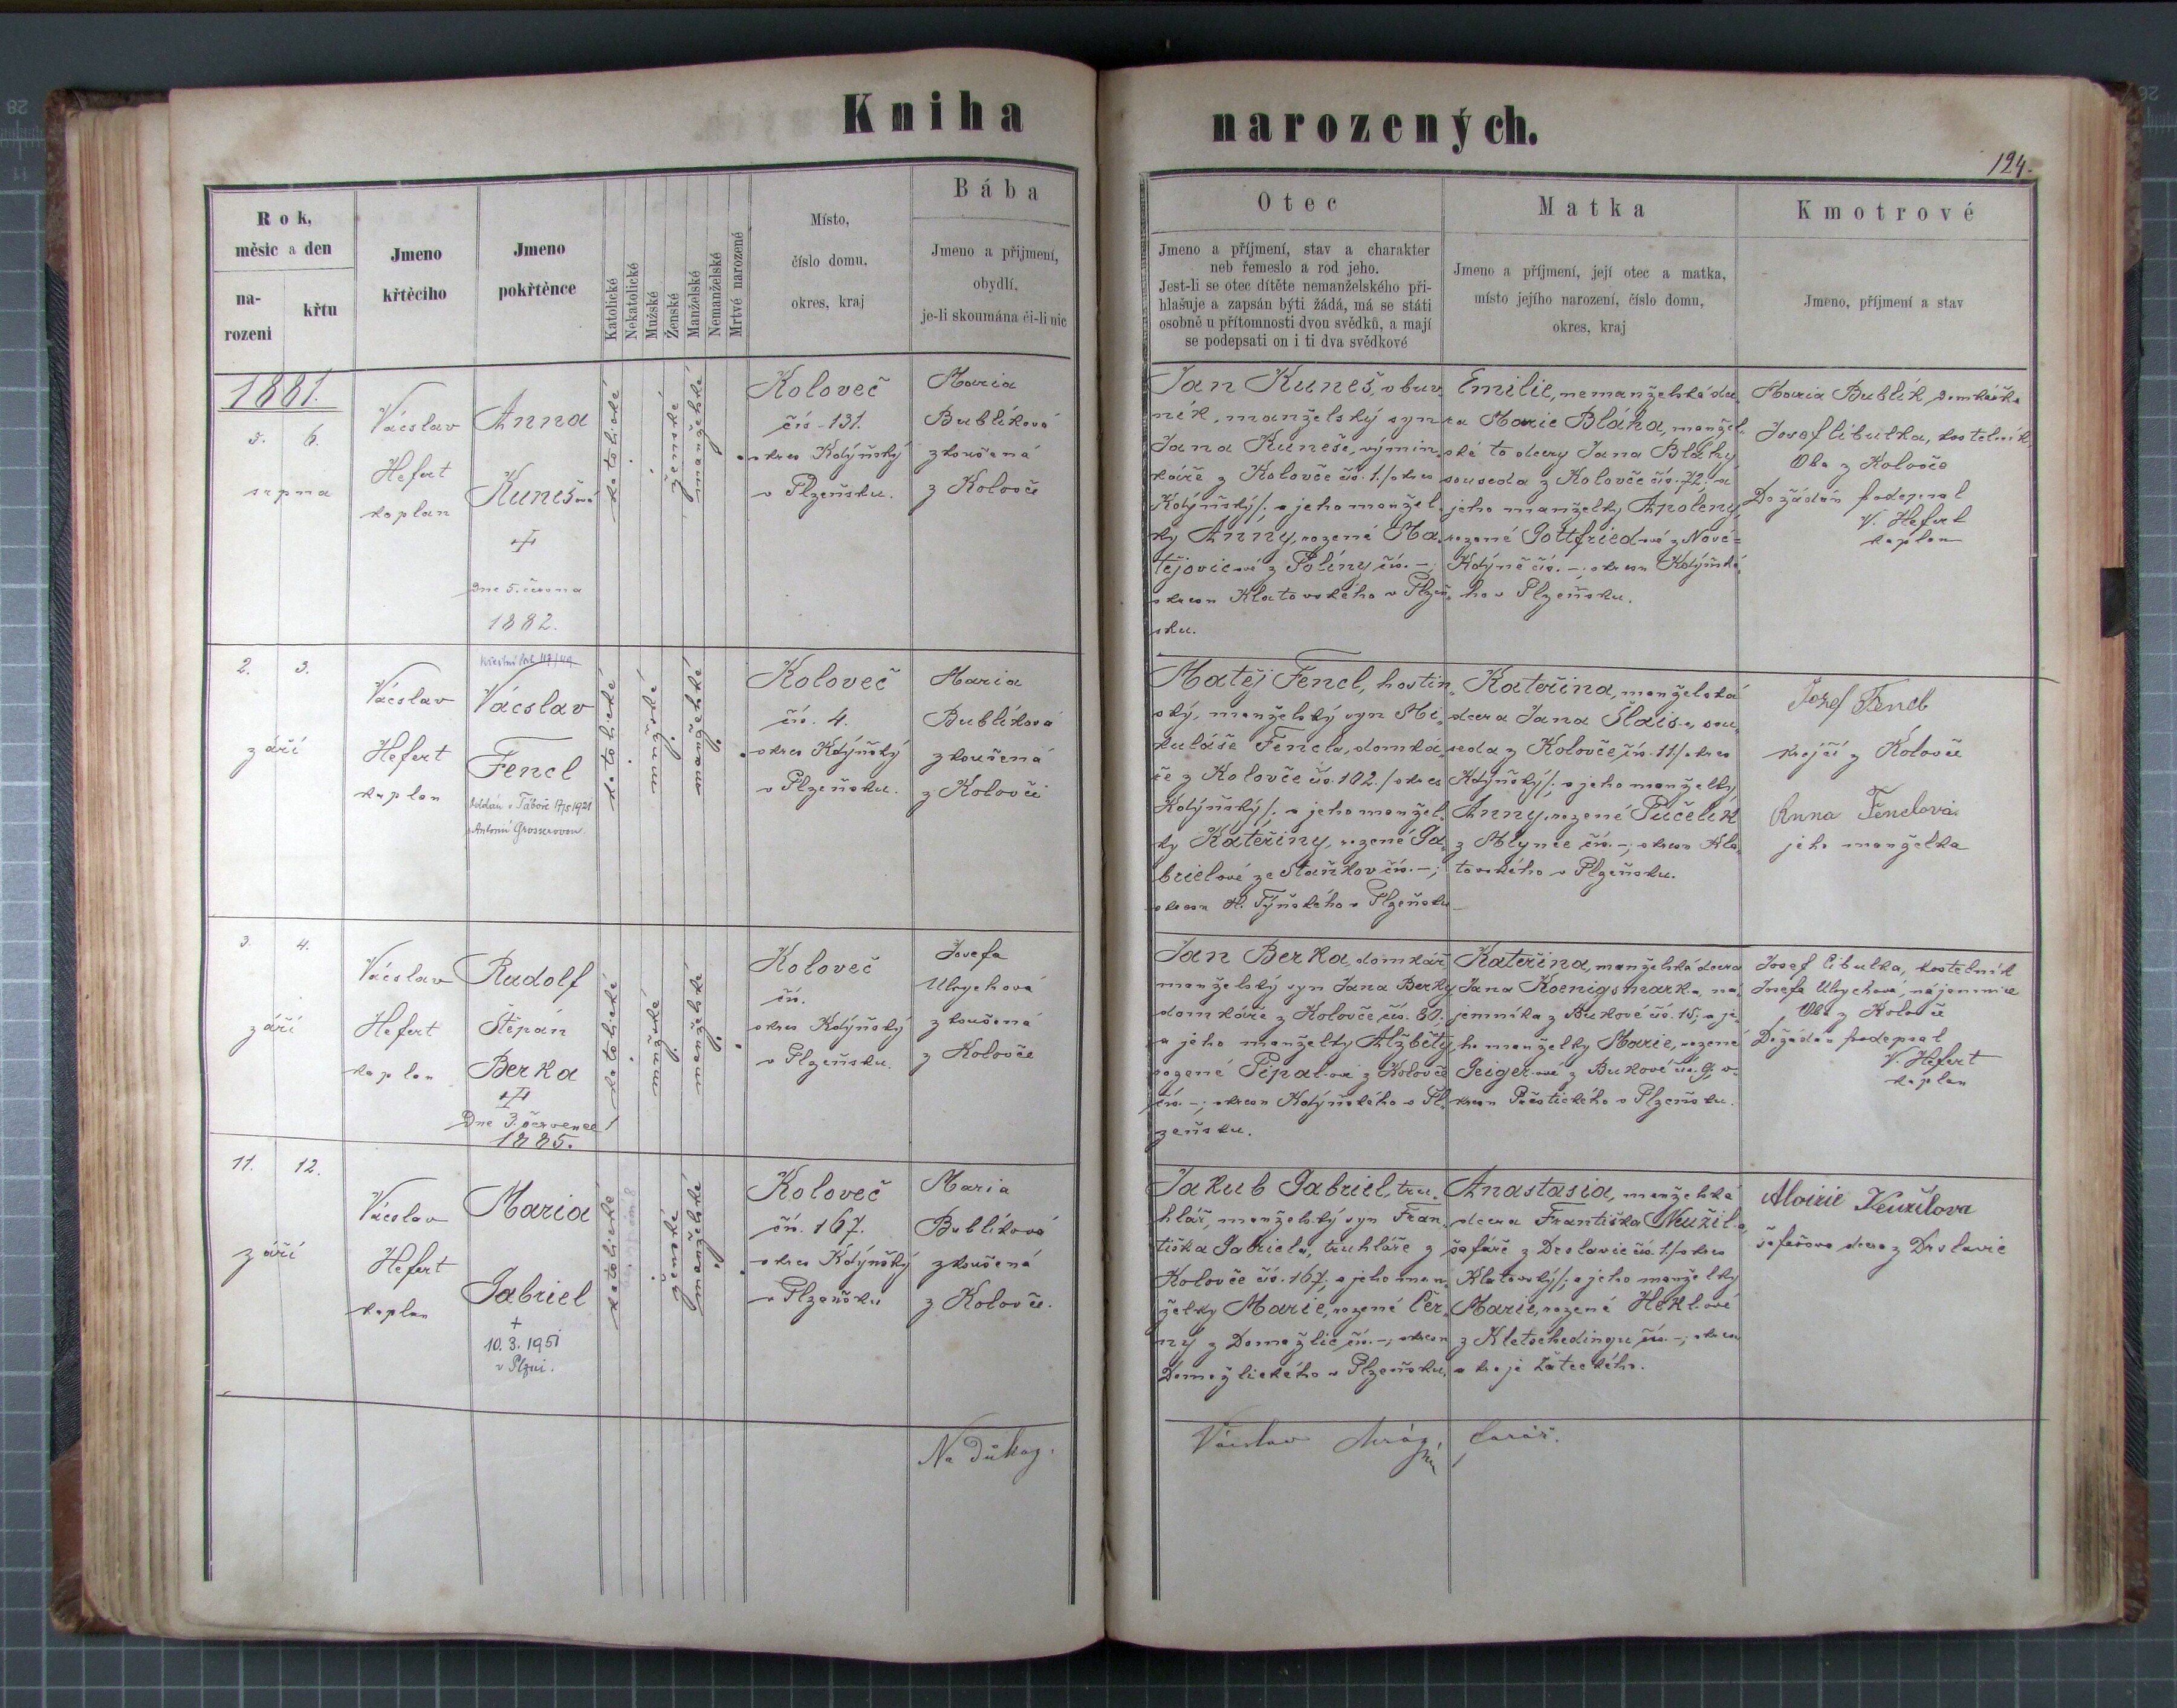 Kniha narozených.
124.
Rok,
měsíc a den
na-
rozeni
křtu
Jmeno
křtěcího
Jmeno
pokřtěnce
Katolické
Nekatolické
Mužské
Ženské
Manželské
Nemanželské
Mrtvé narozené
Místo,
číslo domu,
okres, kraj
Bába
Jmeno a přijmení,
obydlí,
je-li skoumána či-li nic
Otec
Jmeno a příjmení, stav a charakter
neb řemeslo a rod jeho.
Jest-li se otec dítěte nemanželského při-
hlašuje a zapsán býti žádá, má se státi
osobně u přítomnosti dvou svědků, a mají
se podepsati on i ti dva svědkové
Matka
Jmeno a příjmení, její otec a matka,
místo jejího narození, číslo domu,
okres, kraj
Kmotrové
Jmeno, příjmení a stav
1881.
5. 6.
srpna
Vácslav
Hefert
kaplan
Anna
Kunešová
Dne 5. června
1882.
katolické
ženské
manželské
Koloveč
čís. 131.
okres Kdýňský
v Plzeňsku.
Maria
Bublíková
zkoušená
z Kolovče
Jan Kuneš, obuv-
ník, manželský syn
Jana Kuneše, výmin-
káře z Kolovče čís. 1./okres
Kdýňský/: a jeho manžel-
ky Anny, rozené Ma-
tějovic-ové z Poliny čís. –;
okresu Klatovského v Plzeň-
sku.
Emilie, nemanželská dce-
ra Marie Bláha, manžel-
ské to dcery Jana Bláhy
souseda z Kolovče čís. 72. a
jeho manželky Apoleny,
rozené Gottfried-ové z Nové-
Kdýně čís. –; okresu Kdýňské-
ho v Plzeňsku.
Maria Bublík, domkářka
Josef Cibulka, kostelník
Oba z Kolovče
Dožádán podepsal
V. Hefert
kaplan
2. 3.
září
Vácslav
Hefert
kaplan
Vácslav
Fencl
Oddán v Táboře 17/5 1921
s Antonií Grosserovou
katolické
mužské
manželské
Koloveč
čís. 4.
okres Kdýňský
v Plzeňsku.
Maria
Bublíková
zkoušená
z Kolovče
Matěj Fencl, hostin-
ský, manželský syn Mi-
kuláše Fencla, domká-
ře z Kolovče čís. 102./okres
Kdýňský/: a jeho manžel-
ky Kateřiny, rozené Ga-
brielové ze Staňkov čís. –;
okresu H. Týnského v Plzeňsku
Kateřina, manželská
dcera Jana Šlais-a, sou-
seda z Kolovče čís. 11./okres
Kdýňský/: a jeho manželky
Anny, rozené Pučelík
z Mlynce čís. –; okresu Kla-
tovského v Plzeňsku.
Jozef Fencl
krejčí z Kolovče
Anna Fenclová
jeho manželka
3. 4.
září
Vácslav
Hefert
kaplan
Rudolf
Štěpán
Berka
Dne 3. července
1885.
katolické
mužské
manželské
Koloveč
čís.
okres Kdýňský
v Plzeňsku.
Josefa
Ulrychová
zkoušená
z Kolovče
Jan Berka, domkář
manželský syn Jana Berky
domkáře z Kolovče čís. 80.
a jeho manželky Alžběty,
rozené Pipal-ové z Kolovče
čís. –; okresu Kdýňského v Pl-
zeňsku.
Kateřina, manželská dcera
Jana Koenigsmark-a, ná-
jemníka z Bukové čís. 15; a je-
ho manželky Marie, rozené
Geiger-ové z Bukové čís. 9; o-
kresu Přestického v Plzeňsku.
Josef Cibulka, kostelník
Josefa Ulrychová, nájemnice
Oba z Kolovče
Dožádán podepsal
V. Hefert
kaplan
11. 12.
září
Vácslav
Hefert
kaplan
Maria
Gabriel
+
10. 3. 1951
v Plzni.
katolické
ženské
manželské
Koloveč
čís. 167.
okres Kdýňský
v Plzeňsku
Maria
Bublíková
zkoušená
z Kolovče.
Jakub Gabriel, tru-
hlář, manželský syn Fran-
tiška Gabriela, truhláře z
Kolovče čís. 167; a jeho man-
želky Marie, rozené Čer-
ny z Domažlic čís. –; okresu
Domažlického v Plzeňsku.
Anastasia, manželská
dcera Františka Neužil-a,
šafáře z Drslavic čís. 1./okres
Klatovský/; a jeho manželky
Marie, rozené Hekl-ové
z Kletschedingu čís. –; okresu
a kraje Žateckého.
Aloisie Neužilova
šafařova dcera z Drslavic
Na důkaz:
Václav farář.